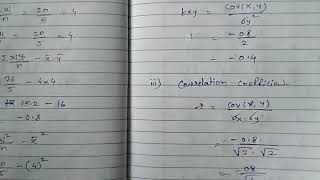 xi/n = 20/5 = 4
= 20/5 = 4
Σxiyi/n - x̄ ȳ
76/5 - 4×4
15.2 - 16
- 0.8
yi²/n - x̄²
0/5 - (4)²
bxy = cov(x,y)/6y²
= -0.8/2
= -0.4
iii) Correlation coefficien
r = cov(x,y)/6x·6y
= -0.8/√2·√2
= -0.8